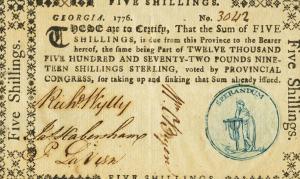 FIVE SHILLINGS.
GEORGIA. 1776. No. 3042
THESE are to Certify, That the Sum of FIVE
SHILLINGS, is due from this Province to the Bearer
hereof, the same being Part of TWELVE THOUSAND
FIVE HUNDRED AND SEVENTY-TWO POUNDS NINE-
TEEN SHILLINGS STERLING, voted by PROVINCIAL
CONGRESS, for taking up and sinking that Sum already issued.
Richd Wylly
E Lavien
Five Shillings.
Five Shillings.